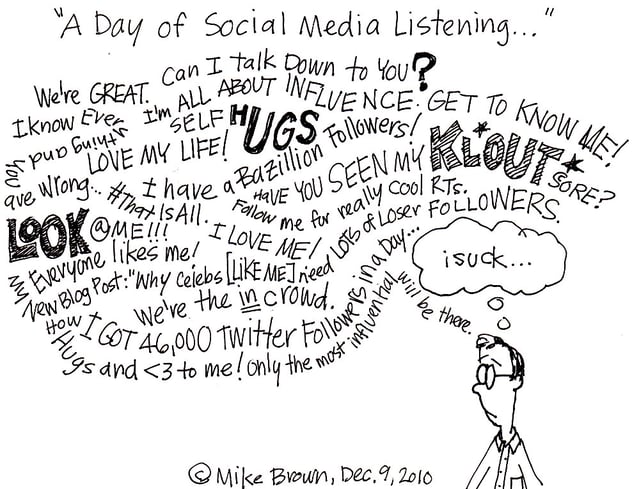 "A Day of Social Media Listening..."
Can I Talk Down to You?
We're GREAT.
I'm ALL ABOUT INFLUENCE.
GET TO KNOW ME!
I know Everything and
You are wrong...
SELF HUGS
I LOVE MY LIFE!
I have a Bazillion Followers!
HAVE YOU SEEN MY KLOUT SORE?
#ThatIsAll.
Follow me for really cool RTs.
LOOK @ME!!!
I LOVE ME!
LOTS of Loser FOLLOWERS.
Everyone likes me!
My New Blog Post: "Why Celebs [LIKE ME] need
HUGS and <3 to me!
We're the in crowd.
How I GOT 46,000 Twitter Followers in a Day...
Only the most influential will be there.
isuck...
© Mike Brown, Dec. 9, 2010